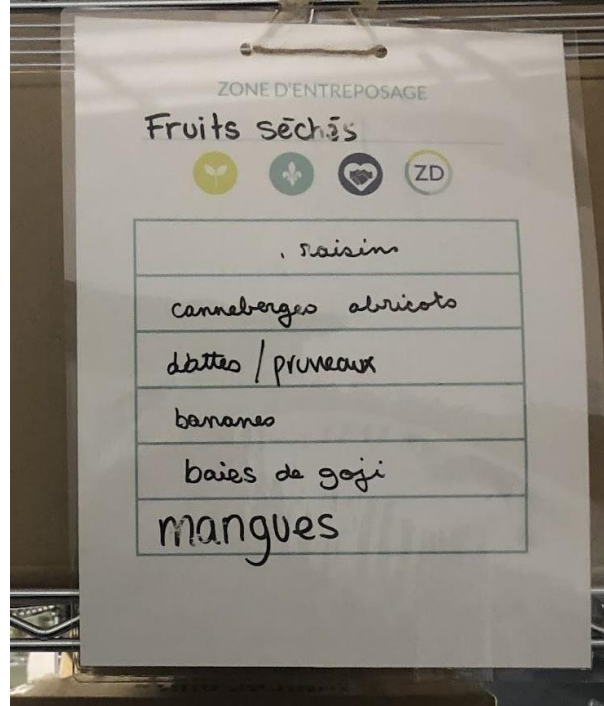 ZONE D'ENTREPOSAGE
Fruits séchés
ZD
, raisins
canneberges abricots
dattes / pruneaux
bananes
baies de goji
mangues